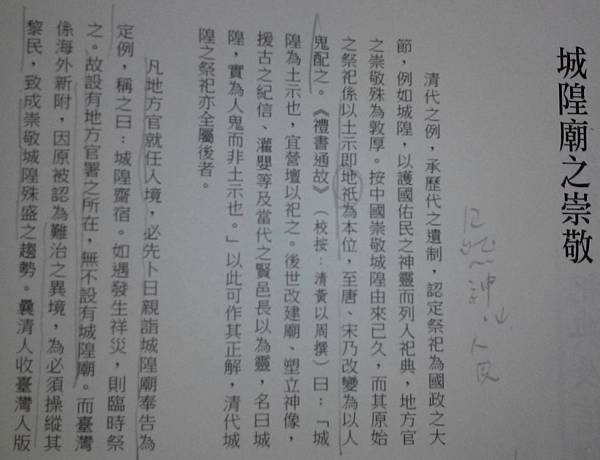 城隍廟之崇敬
清代之例，承歷代之遺制，認定祭祀為國政之大
節，例如城隍，以護國佑民之神靈而列入祀典，地方官
之崇敬殊為敦厚。按中國崇敬城隍由來已久，而其原始
之祭祀係以土示即地祇為本位，至唐、宋乃改變為以人
鬼配之。《禮書通故》（校按：清黃以周撰）曰：「城
隍為土示也，宜營壇以祀之。後世改建廟、塑立神像，
援古之紀信、灌嬰等及當代之賢邑長以為靈，名曰城
隍，實為人鬼而非土示也。」以此可作其正解，清代城
隍之祭祀亦全屬後者。
凡地方官就任入境，必先卜日親詣城隍廟奉告為
定例，稱之曰：城隍齋宿。如遇發生祥災，則臨時祭
之。故設有地方官署之所在，無不設有城隍廟。而臺灣
係海外新附，因原被認為難治之異境，為必須操縱其
黎民，致成崇敬城隍殊盛之趨勢。曩清人收臺灣入版